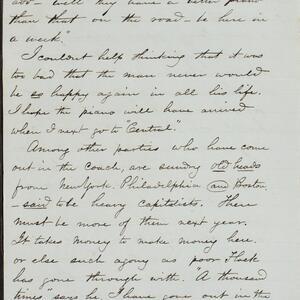 abo - well they have a better piano
than that on the road - be here in
a week."
I couldn't help thinking that it was
too bad that the man never would
be so happy again in all his life.
I hope the piano will have arrived
when I next go to "Central".
Among other parties who have come
out in the coach, are sundry old heads
from New York, Philadelphia and Boston
- said to be heavy capitalists. There
must be more of them next year.
It takes money to make money here.
or else such agony as poor Hask
has gone through with. "A thousand
times" says he I have gone out in the